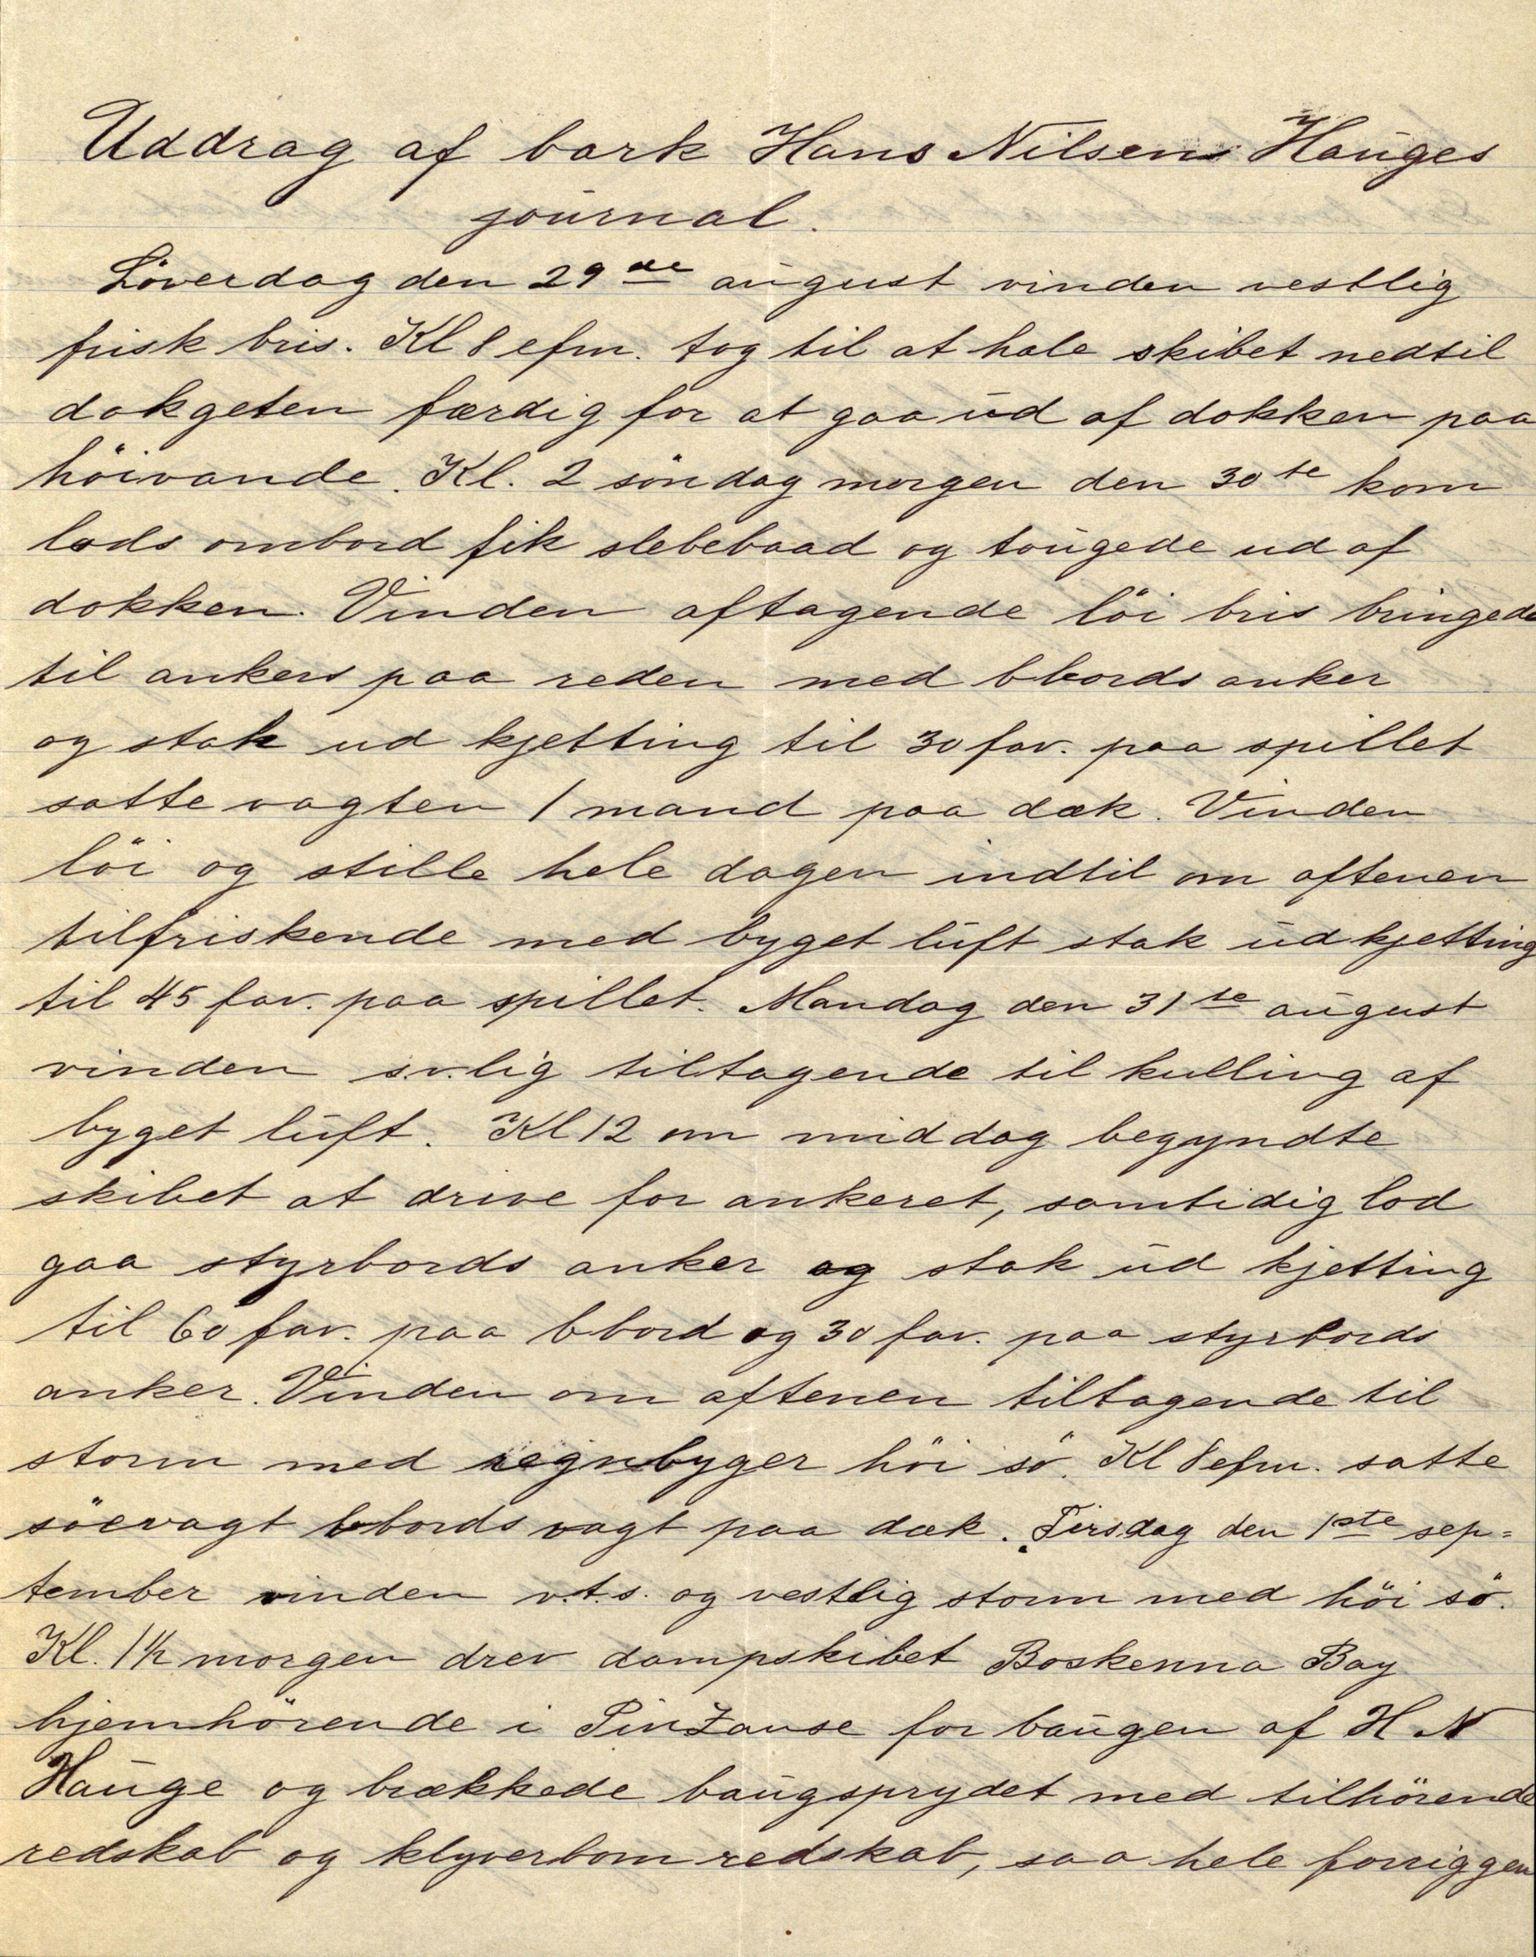 Uddrag af bark Hans Nilsens Hauges
journal.
Löverdag den 29de august vinden vestlig
frisk bris. Kl 8 efm. tog til at hale skibet nedtil
dokgeten færdig for at gaa ud af dokken paa
höivande. Kl. 2 söndag morgen den 30te kom
lods ombord fik slebebaad og tougede ud af
dokken. Vinden aftagende löi bris bringede
til ankers paa reden med bbords anker
og stak ud kjetting til 30 fav. paa spillet
satte vagten 1 mand paa dæk. Vinden
löi og stille hele dagen indtil om aftenen
tilfriskende med byget luft stak ud kjetting
til 45 fav. paa spillet. Mandag den 31te august
vinden s.v.lig tiltagende til kulling af
byget luft. Kl 12 om middag begyndte
skibet at drive for ankeret, samtidig lod
gaa styrbords anker og stak ud kjetting
til 60 fav. paa bbord og 30 fav. paa styrbords
anker. Vinden om aftenen tiltagende til
storm med regnbyger höi sö. Kl 8 efm. satte
söevagt bbords vagt paa dæk. Tirsdag den 1ste sep=
tember vinden v.t.s. og vestlig storm med höi sö.
Kl. 1½ morgen drev dampskibet Boskenna Bay
hjemhörende i PinZanse for baugen af H N
Hauge og brækkede baugsprydet med tilhörende
redskab og klyverbom redskab, saa hele forriggen